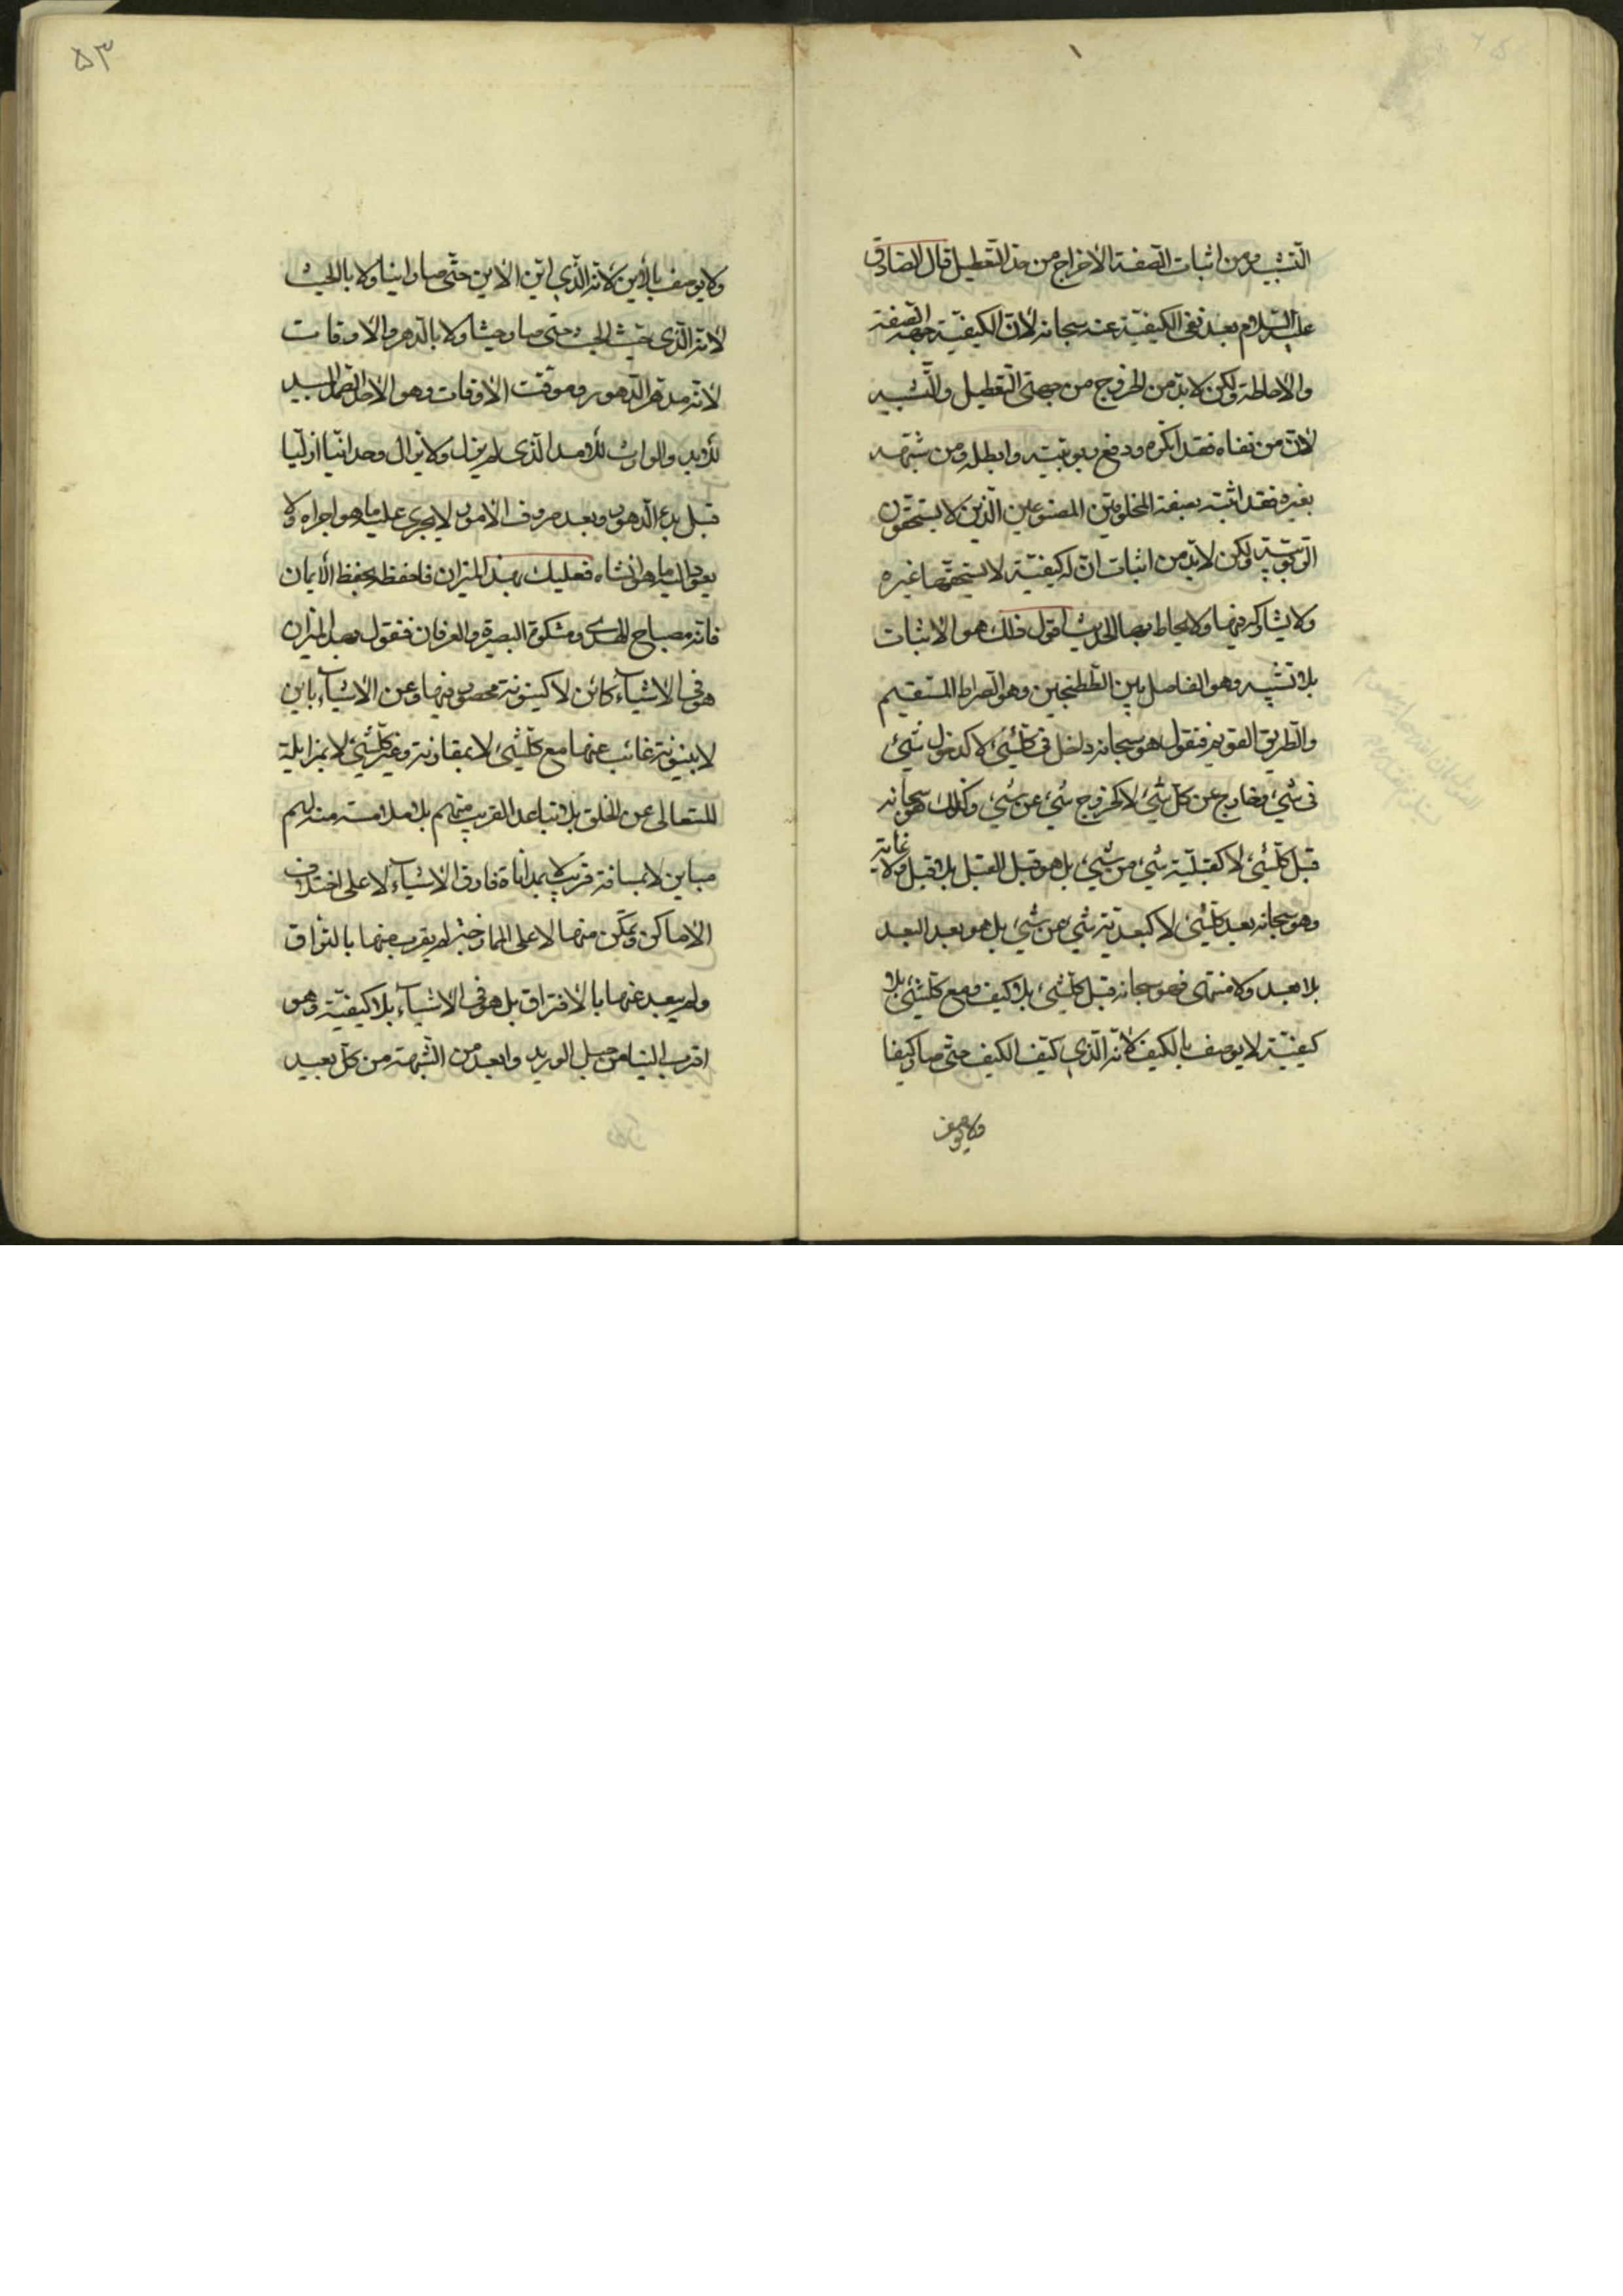 التشبيه ومن اثبات الصفة الاخراج من حد التعطيل قال الصادق
عليه السلام بعد نفى الكيفيّة عنه سبحانه لانّ الكيفيّة جهة الصفة
والاحاطة ولكن لابدّ من الخروج من جهتى التّعطيل والتّشبيه
لانّ من نفاه فقد انكره ودفع ربوبيّته وابطله ومن شبّهه
بغيره فقد اثبته بصفة المخلوقين المصنوعين الّذين لا يستحقّون
الرّبوبيّة ولكن لابدّ من اثبات انّ له كيفيّة لا يستحقّها غيره
ولا يشاركه فيها ولا يحاط بها الحديث اقول فذلك هو الاثبات
بلا تشبيه وهو الفاصل بين الطّطنجين وهو الصراط المستقيم
والطّريق القويم فنقول هو سبحانه داخل فى كلّشئ لا كدخول شئ
فى شئ وخارج عن كلّ شئ لا كخروج شئ عن شئ وكذلك هو سبحانه
قبل كلّشئ لا كقبليّة شئ من شئ بل هو قبل القبل بلا قبل ولا غاية
وهو سبحانه بعد كلّشئ لا كبعديّة شئ من شئ بل هو بعد البعد
بلا بعد ولا منتهى فهو سبحانه قبل كلّشئ بلا كيف ومع كلّشئ بلا
كيفيّة لا يوصف بالكيف لانّه الّذى كيّف الكيف حتّى صار كيفا
ولا يوصف
٥٣
ولا يوصف بالأين لانّه الّذى ايّن الاين حتّى صار اينا ولا بالحيث
لانّه الّذى حيّث الحيث حتّى صار حيثا ولا بالدّهر والاوقات
لانّه مدهّر الدّهور وموقّت الاوقات وهو الاحد الصّمد المبيد
للابد والوارث للامد الّذى لم يزل ولا يزال وحدانيّا ازليّا
قبل بدء الدّهور وبعد صروف الامور لا يجرى عليه ما هو اجراه ولا
يعود اليه ما هو انشاه فعليك بهذا الميزان فاحفظه بحفظ الأيمان
فانّه مصباح الهدى ومشكوة البصيرة والعرفان فنقول بهذا الميزان
هو فى الاشيآء كائن لا كينونة محصور فيها وعن الاشيآء باين
لا بينونة غائب عنها مع كلّشئ لا بمقارنة وغير كلّشئ لا بمزايلة
المتعالى عن الخلق بلا تباعد القريب منهم بلا ملامسة منه لهم
مباين لا بمسافة قريب لا بمداناة فارق الاشيآء لا على اختلاف
الاماكن وتمكّن منها لا على الممازجة لم يقرب منها بالتزاق
ولم يبعد عنها بالافتراق بل هو فى الاشيآء بلا كيفيّة وهو
اقرب الينا من حبل الوريد وابعد من الشّبهة من كلّ بعيد